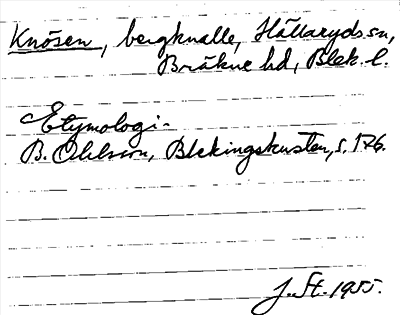 Knösen, bergknalle, Hällaryds sn,
Bräkne hd, Blek. l.
Etymologi-
B. Ohlsson, Blekingskusten, s. 176.
J. St. 1955.